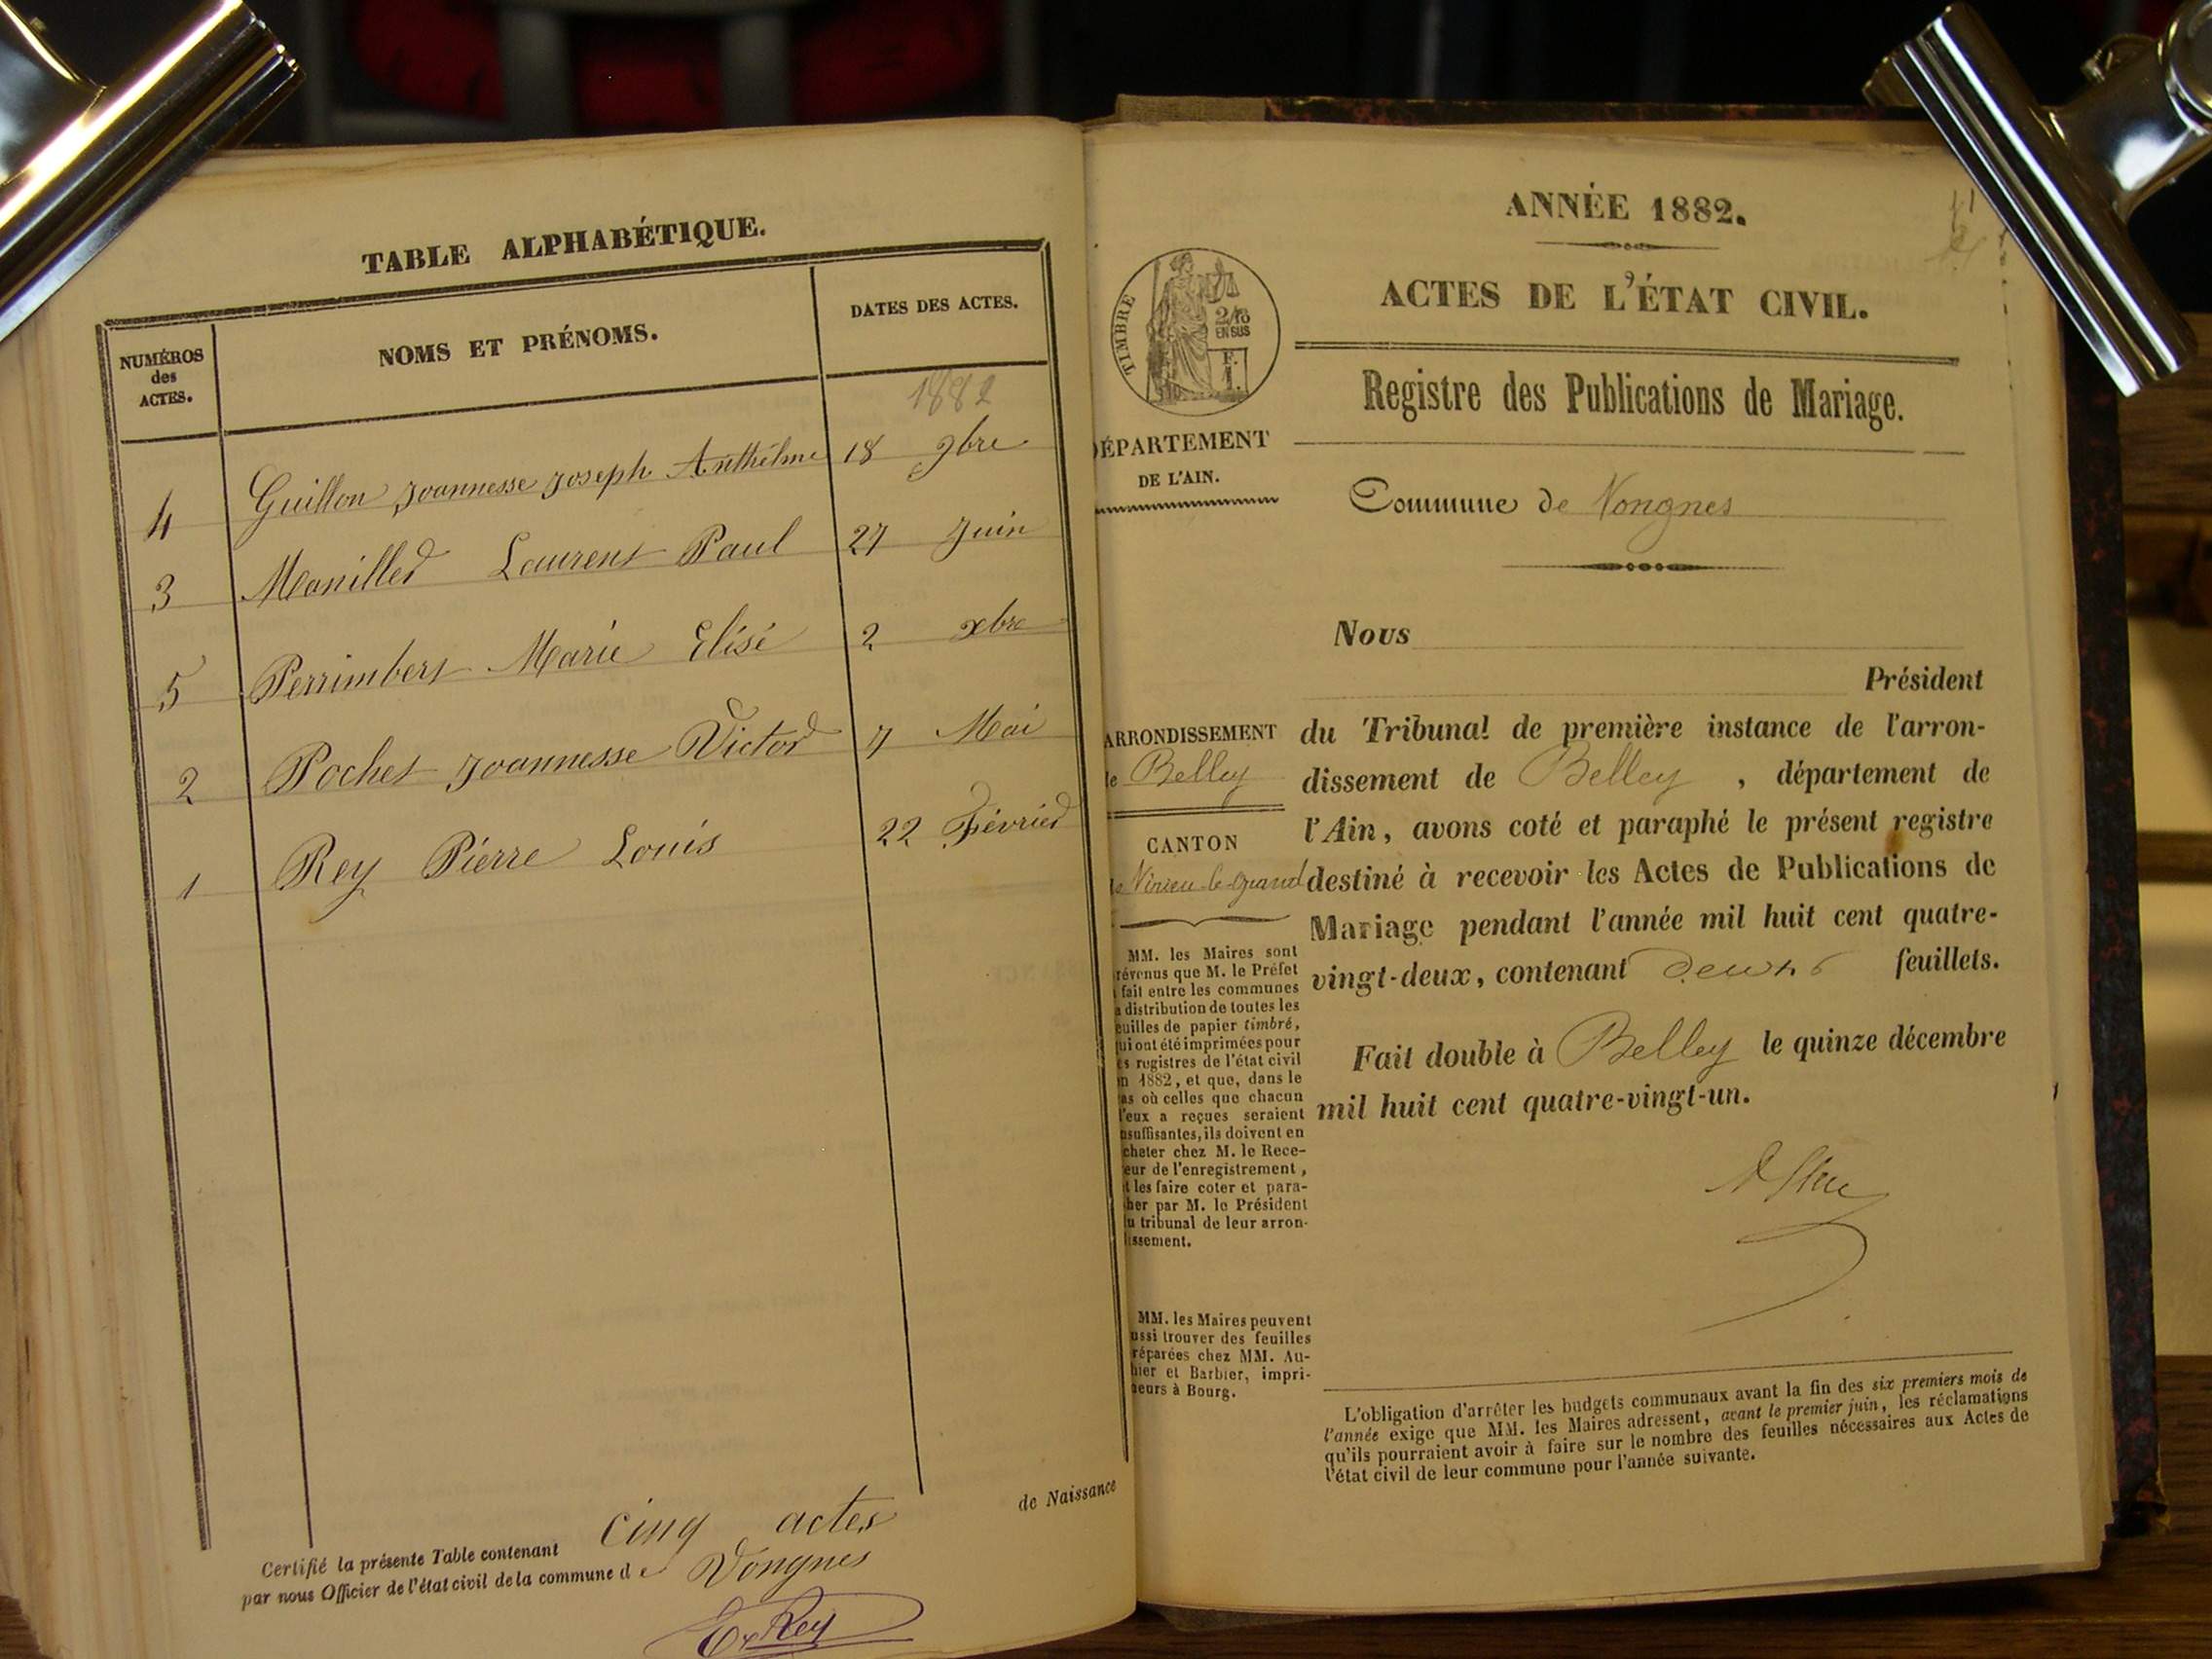 TABLE ALPHABÉTIQUE.
NUMÉROS des ACTES.
NOMS ET PRÉNOMS.
DATES DES ACTES.
1882
4 Guillon Joannesse Joseph Anthelme 18 9bre
3 Manilled Laurent Paul 27 Juin
5 Perrimbert Marie Elisé 2 xbre
2 Pochet Joannesse Victor 7 Mai
1 Rey Pierre Louis 22 Février
Certifié la présente Table contenant cinq actes de Naissance
par nous Officier de l'état civil de la commune de Vongnes
Rey
ANNÉE 1882.
ACTES DE L'ÉTAT CIVIL.
TIMBRE
2/10
EN SUS
F.
1.
Registre des Publications de Mariage.
DÉPARTEMENT
DE L'AIN.
Commune de Vongnes
Nous
Président
ARRONDISSEMENT
de Belley
CANTON
de Virieu-le-grand
du Tribunal de première instance de l'arron-
dissement de Belley , département de
l'Ain, avons coté et paraphé le présent registre
destiné à recevoir les Actes de Publications de
Mariage pendant l'année mil huit cent quatre-
vingt-deux, contenant deux feuillets.
Fait double à Belley le quinze décembre
mil huit cent quatre-vingt-un.
MM. les Maires sont
révenus que M. le Préfet
fait entre les communes
a distribution de toutes les
euilles de papier timbré,
ui ont été imprimées pour
es registres de l'état civil
n 1882, et que, dans le
as où celles que chacun
'eux a reçues seraient
nsuffisantes, ils doivent en
cheter chez M. le Rece-
eur de l'enregistrement,
t les faire coter et para-
her par M. le Président
u tribunal de leur arron-
issement.
MM. les Maires peuvent
ussi trouver des feuilles
réparées chez MM. Au-
hier et Barbier, impri-
eurs à Bourg.
L'obligation d'arrêter les budgets communaux avant la fin des six premiers mois de
l'année exige que MM. les Maires adressent, avant le premier juin, les réclamations
qu'ils pourraient avoir à faire sur le nombre des feuilles nécessaires aux Actes de
l'état civil de leur commune pour l'année suivante.